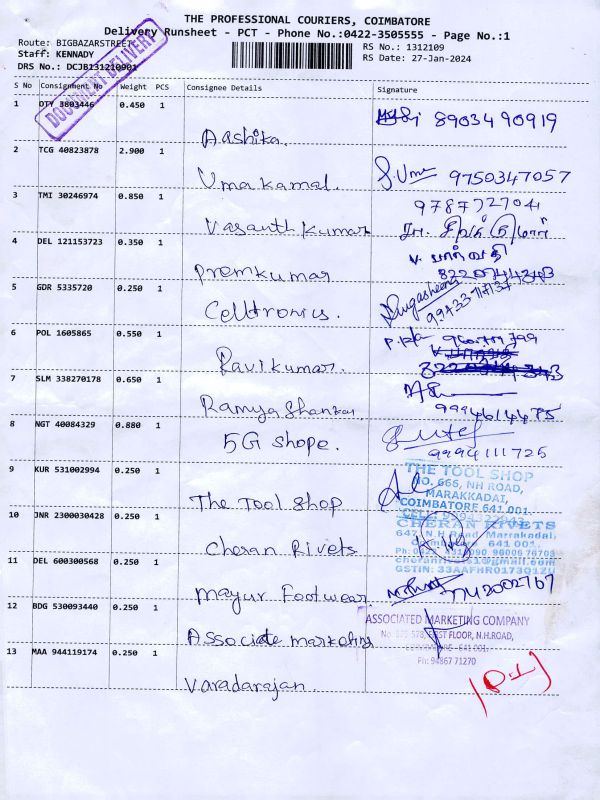 THE PROFESSIONAL COURIERS, COIMBATORE
Delivery Runsheet - PCT - Phone No.:0422-3505555 - Page No.:1
Route: BIGBAZARSTREET
Staff: KENNADY
DRS No.: DCJB131210901
RS No.: 1312109
RS Date: 27-Jan-2024
DOCUMENT DELIVERY
S No Consignment No Weight PCS Consignee Details Signature
1 DTY 3803446 0.450 1 Aashika. 8903490919
2 TCG 40823878 2.900 1 Umakamal. S.Uma 9750347057
3 TMI 30246974 0.850 1 Vasanth kumar 9787727041
4 DEL 121153723 0.350 1 Premkumar V. பார்வதி
5 GDR 5335720 0.250 1 Celltronics.
6 POL 1605865 0.550 1 Ravikumar.
7 SLM 338270178 0.650 1 Ramya Shankar
8 NGT 40084329 0.880 1 5G shope. 9994111725
9 KUR 531002994 0.250 1 The Tool Shop
THE TOOL SHOP
NO. 666, NH ROAD,
MARAKKADAI,
COIMBATORE 641 001.
10 JNR 2300030428 0.250 1 Cheran Rivets
CHERAN RIVETS
647, N.H Road, Marrakadai,
641 001.
GSTIN: 33AAFHR0173Q1ZU
11 DEL 600300568 0.250 1 Mayur Footwear
12 BDG 530093440 0.250 1 Associate marketing
ASSOCIATED MARKETING COMPANY
FIRST FLOOR, N.H.ROAD,
Ph: 94867 71270
13 MAA 944119174 0.250 1 Varadarajan.